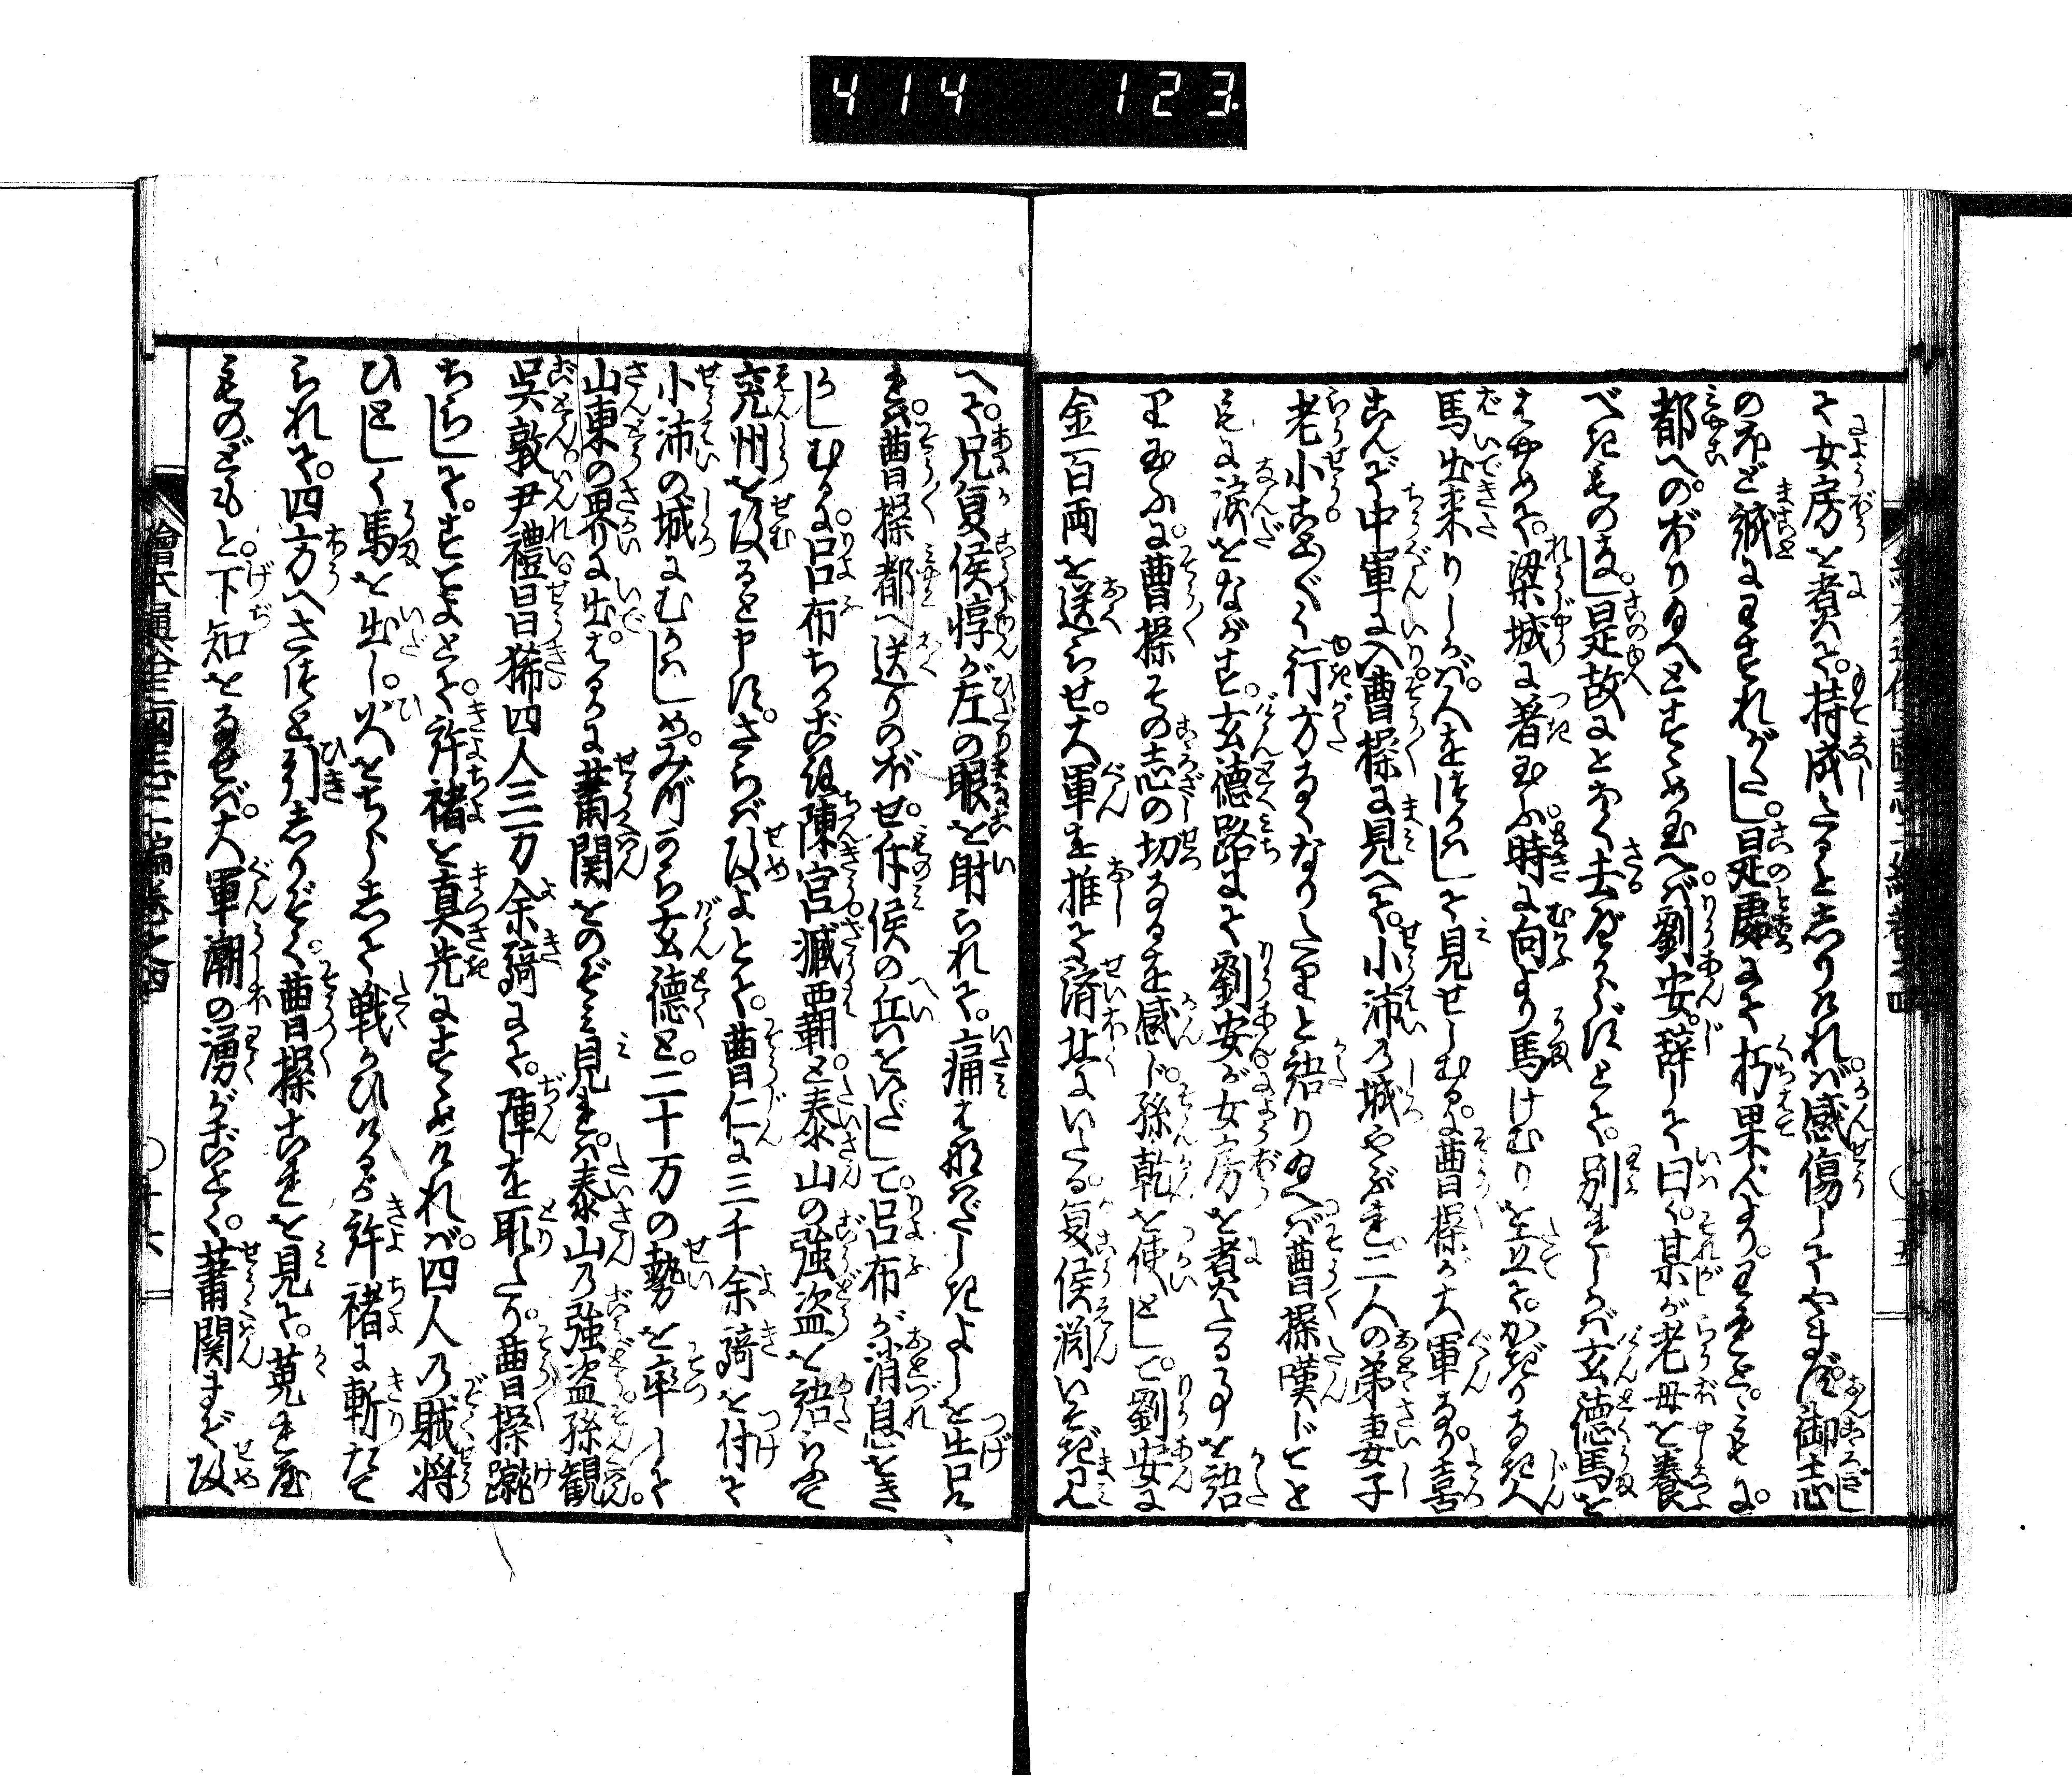 414 123
て女房を煮て。持成たると志りければ。感傷してやまず。御志
のほど誠にわすれがたし。是処にて朽果んより。われとともに。
都へのぼりゆへとすゝめ玉へば。劉安。辞して曰く。某が老母を養
べきものなし。是故にとをく去がたしとて。別れしかば。玄徳馬を
はやめて。梁城に著玉ふ。時に向より馬けむりを立て。かぎりなき人
馬出来りしかば。人をつかはして見せしむるに。曹操が大軍なり。喜
こんで中軍に入。曹操に見へて。小沛の城やぶれ。二人の弟妻子
老小こと〴〵く行方なくなりたりと語りゆへば。曹操嘆じてとも
もに涙をながす。玄徳路にて劉安が女房を煮たる事を語
り玉ふに。曹操その志の切なるを感じ。孫乾を使として。劉安に
金一百両を送らせ。大軍を推て済北にいたる。夏侯淵いそぎ見
へて。兄夏侯惇が左の眼を射られて。痛はなはだしきよしを告け
れば。曹操都へ送りのぼせ。物候の兵をいだして。呂布が消息をき
かしむるに。呂布ちかごろ陳宮臧覇と。泰山の強盗を語らふて
兗州を攻ると申す。さらば攻よとて。曹仁に三千余騎を付て
小沛の城にむかはしめ。みづから玄徳と。二十万の勢を率して
山東の界に出。はるかに蕭関をのぞみ見れば。泰山の強盗孫観。
呉敦。尹禮。昌豨四人三万余騎にて。陣を取たり。曹操蹴
ちらして。すてよとて。許褚を真先にすゝめければ。四人の賊将
ひとしく馬を出し。火をちらして戦ひけるが。許褚に斬たて
られて。四方へさつと引しりぞく。曹操これを見て。蒐れ
ものどもと。下知をなせば。大軍潮の湧がごとく。蕭関まで攻
繪本通俗三國志二編巻之四
十六